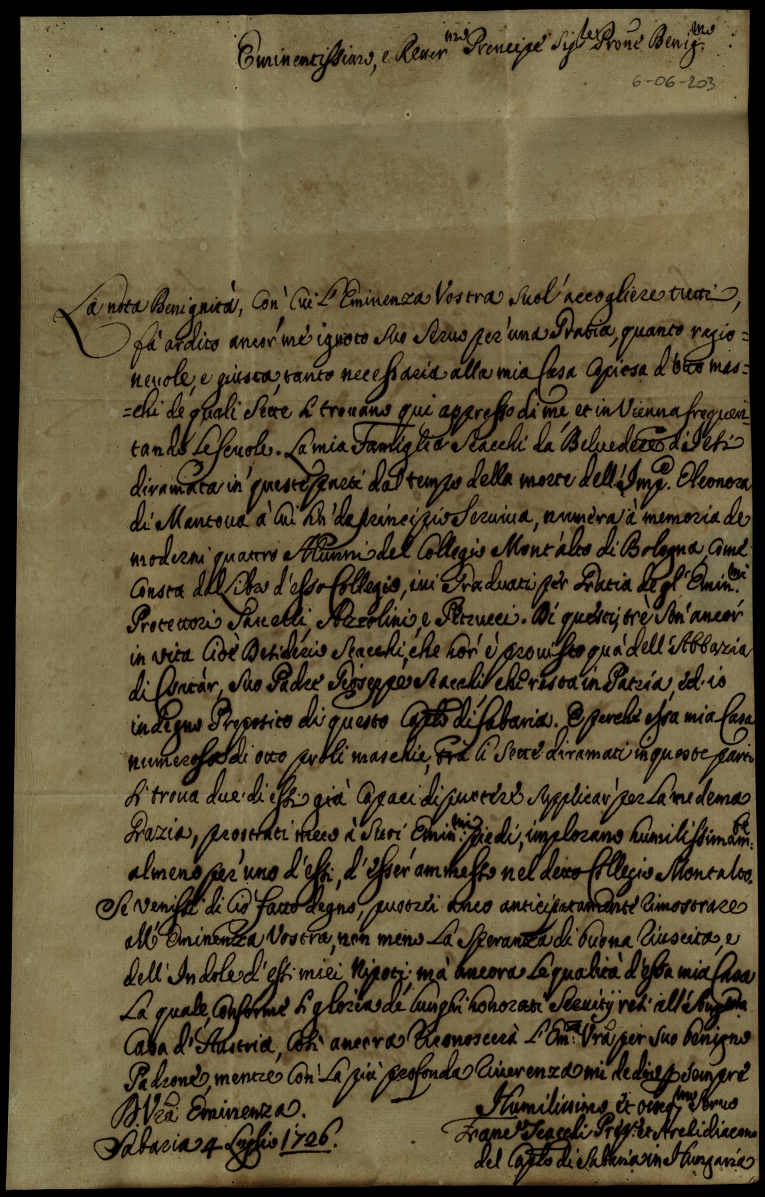 Eminentissimo, e Rever.mo Prencipe Sig.re Prone Benig.mo
6-06-203
La nota Benignità, con' cui l'Eminenza Vostra suol' accogliere tutti,
fà ardito ancor' me ignoto suo servo per' una Gratia, quanto ragio=
nevole, e giusta, tanto necessaria alla mia Casa copiosa d'otto mas=
=chi de quali sette si trovano quì appresso di me et in Vienna frequen=
tando le scuole. La mia Famiglia Scacchi da Belvedere di Jesi
diramata in' queste parti dal tempo della morte dell' Imp. Eleonora
di Mantova à cui sin' da principio serviva, numera à memoria de
moderni quattro Alunni del Collegio Mont'alto di Bologna, come
consta dal Libro d'esso Collegio, ivi Graduati per Gratia de gl' Emin.mi
Protettori Azzolini, e Petrucci. Di questi, tre son' ancor'
in vita cioè Desiderio Scacchi, che hor' è provisto quà dell' Abbazia
di Suo Padre Gioseppe Scacchi che resta in Patria, ed io
indegno Preposito di questo Caplo di Sabaria. E perche essa mia Casa
numerosa di otto proli maschie, frà li sette diramati in queste parti
si trova due di essi già capaci di puotere supplicar' per la medema
Grazia, prostrati meco à suoi Emin.mi piedi, implorano humilissimam.te
almeno per' uno d'essi, d'esser' ammesso nel detto Collegio Montalto.
Se venissi di ciò fatto degno, puotrei anco anticipatamente dimostrare
all' Eminenza Vostra, non meno la speranza di buona riuscita, e
dell' Indole d'essi miei Nipoti, mà ancora le qualità d'essa mia Casa
La quale, conforme si gloria de lunghi honorati servitÿ resi all' Augma
Casa d'Austria, così ancora riconoscerà l'Em.za Vra per suo benigno
Padrone, mentre con' la più profonda riverenza mi dedico per sempre
D. Vra Eminenza.
Humilissimo, et osseq.mo servo
Sabaria 4 Luglio 1726.
Franc.o Scacchi Prep. et Archidiacono
del Caplo di Sabaria in Hungaria